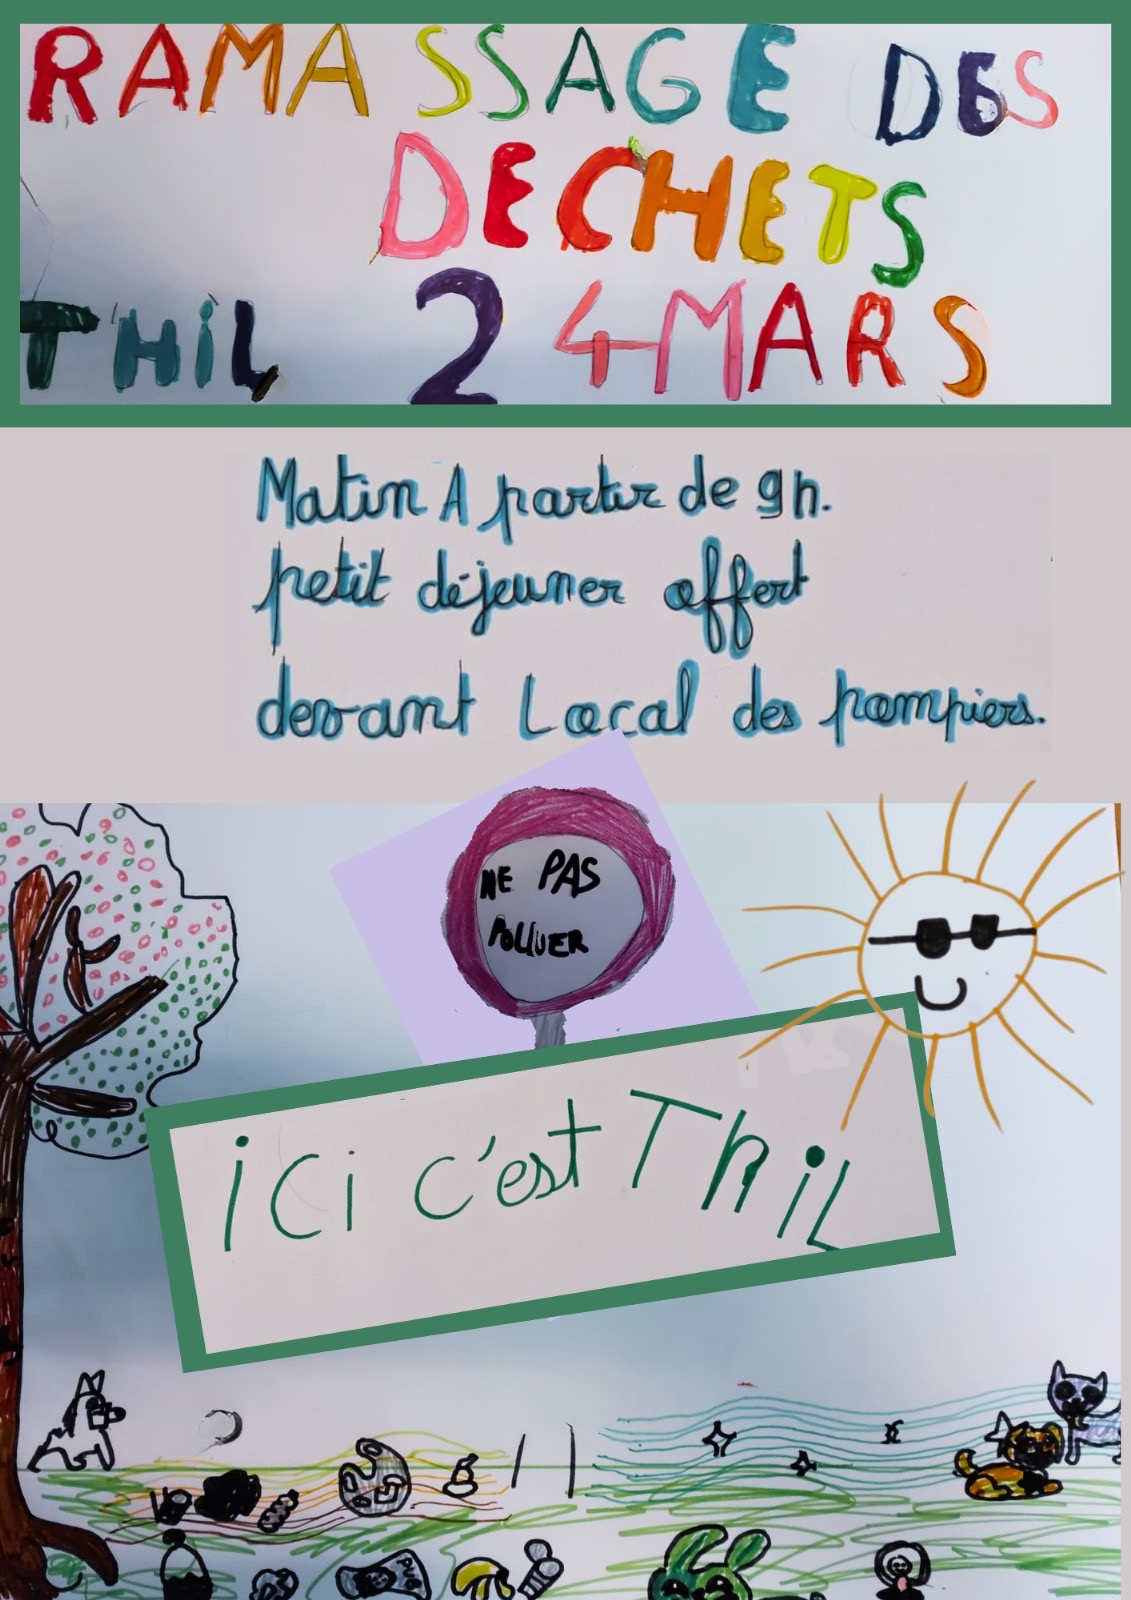 RAMASSAGE DES
DECHETS
THiL 24 MARS
Matin A partir de 9h.
petit déjeuner offert
devant Local des pompiers.
NE PAS
POLLUER
ici c'est ThiL